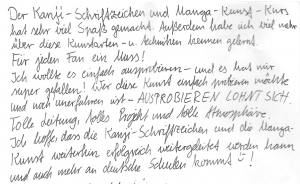 Der Kanji-Schriftzeichen und Manga-Kunst-Kurs
hat sehr viel Spaß gemacht. Außerdem habe ich viel mehr
über diese Kunstarten - u. techniken kennen gelernt.
Für jeden Fan ein Muss!
Ich wollte es einfach ausprobieren - und es hat mir
super gefallen! Wer diese Kunst einfach probieren möchte
und noch unerfahren ist - AUSPROBIEREN LOHNT SICH.
Tolle Leitung, tolles Projekt und tolle Atmosphäre.
Ich hoffe, dass die Kanji-Schriftzeichen und die Manga-
Kunst weiterhin erfolgreich weitergeleitet werden kann
und auch mehr an deutsche Schulen kommt !